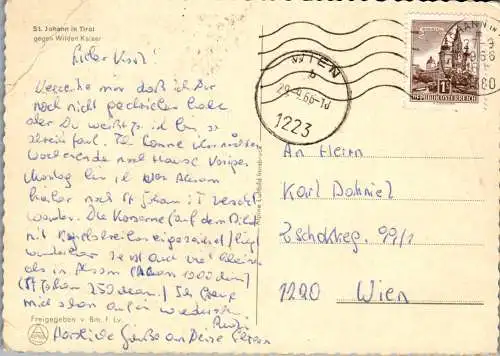 St. Johann in Tirol
gegen Wilden Kaiser
Lieber Karl!
Verzeihe mir daß ich Dir
noch nicht geschrieben habe
aber Du weißt ja ich bin so
schreibfaul. Ich komme
Wochenende nach Hause. Vorigen
Montag bin ich von Absam
hierher nach St Johann i T versetzt
worden. Die Kaserne (auf dem Bilde
mit eingezeichnet) liegt
wunderbar. Sie ist auch viel kleiner
als in Absam (Absam 1200 ;
St Johann 250 ) Ich freue
mich schon auf ein Wiedersehen.
Herzliche Grüße an Deine Eltern
Freigegeben v. Bm. f. Lv.
WIEN
b
1223
REPUBLIK ÖSTERREICH
An Herrn
Karl
99/1
1220 Wien